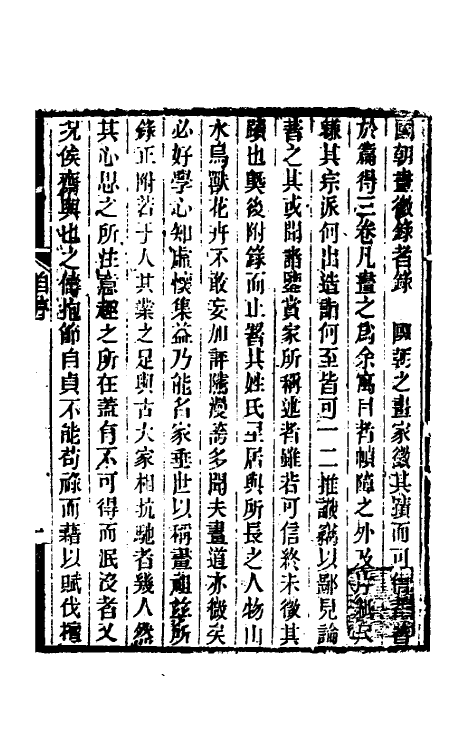 國朝畫徵錄者錄　國朝之畫家徵其蹟而可信者著
於篇得三卷凡畫之爲余寓目者幀障之外及片紙尺
縑其宗派何出造詣何至皆可一二推識竊以鄙見論
著之其或聞諸鑒賞家所稱述者雖若可信終未徵其
蹟也槩後附錄而止署其姓氏里居與所長之人物山
水鳥獸花卉不敢妄加評隲漫誇多聞夫畫道亦微矣
必好學心知虛懷集益乃能名家垂世以稱畫禩兹所
錄正附若干人其業之足與古大家相抗馳者幾人然
其心思之所注意趣之所在蓋有不可得而泯沒者又
况侯齋輿也之儔抱節自貞不能苟祿而藉以賦伐檀
自序
一